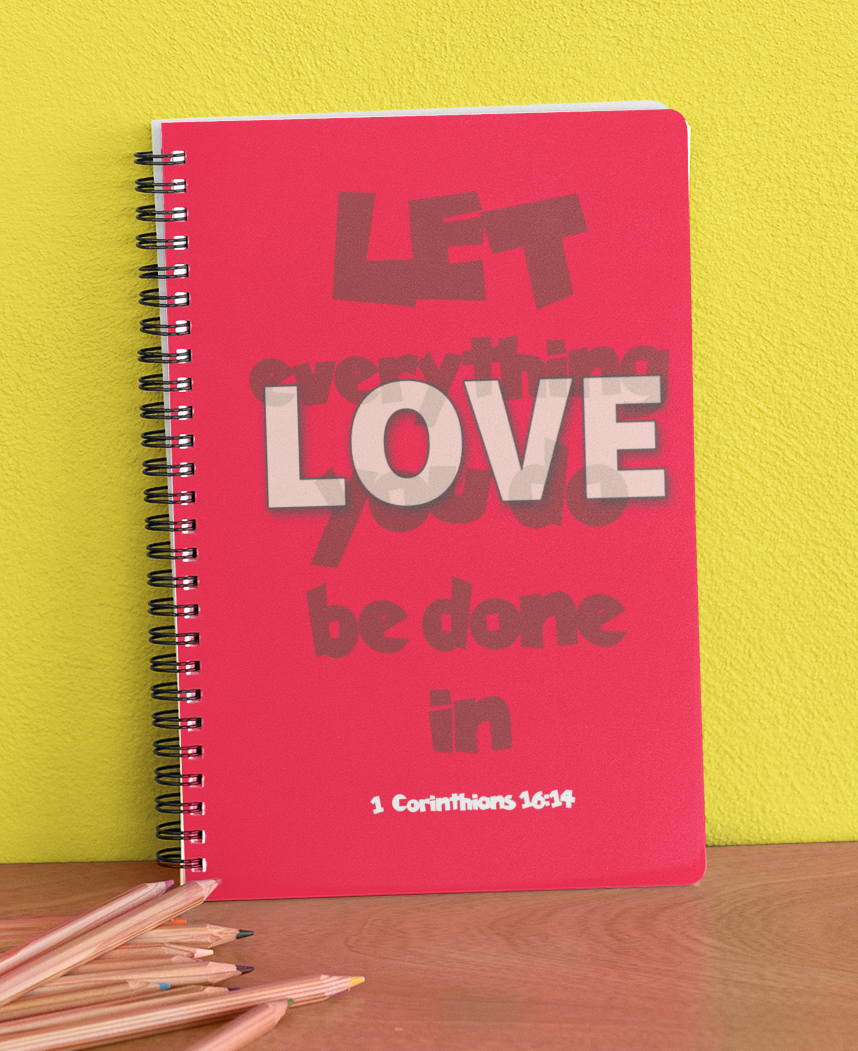 LET
everything
LOVE
you do
be done
in
1 Corinthians 16:14